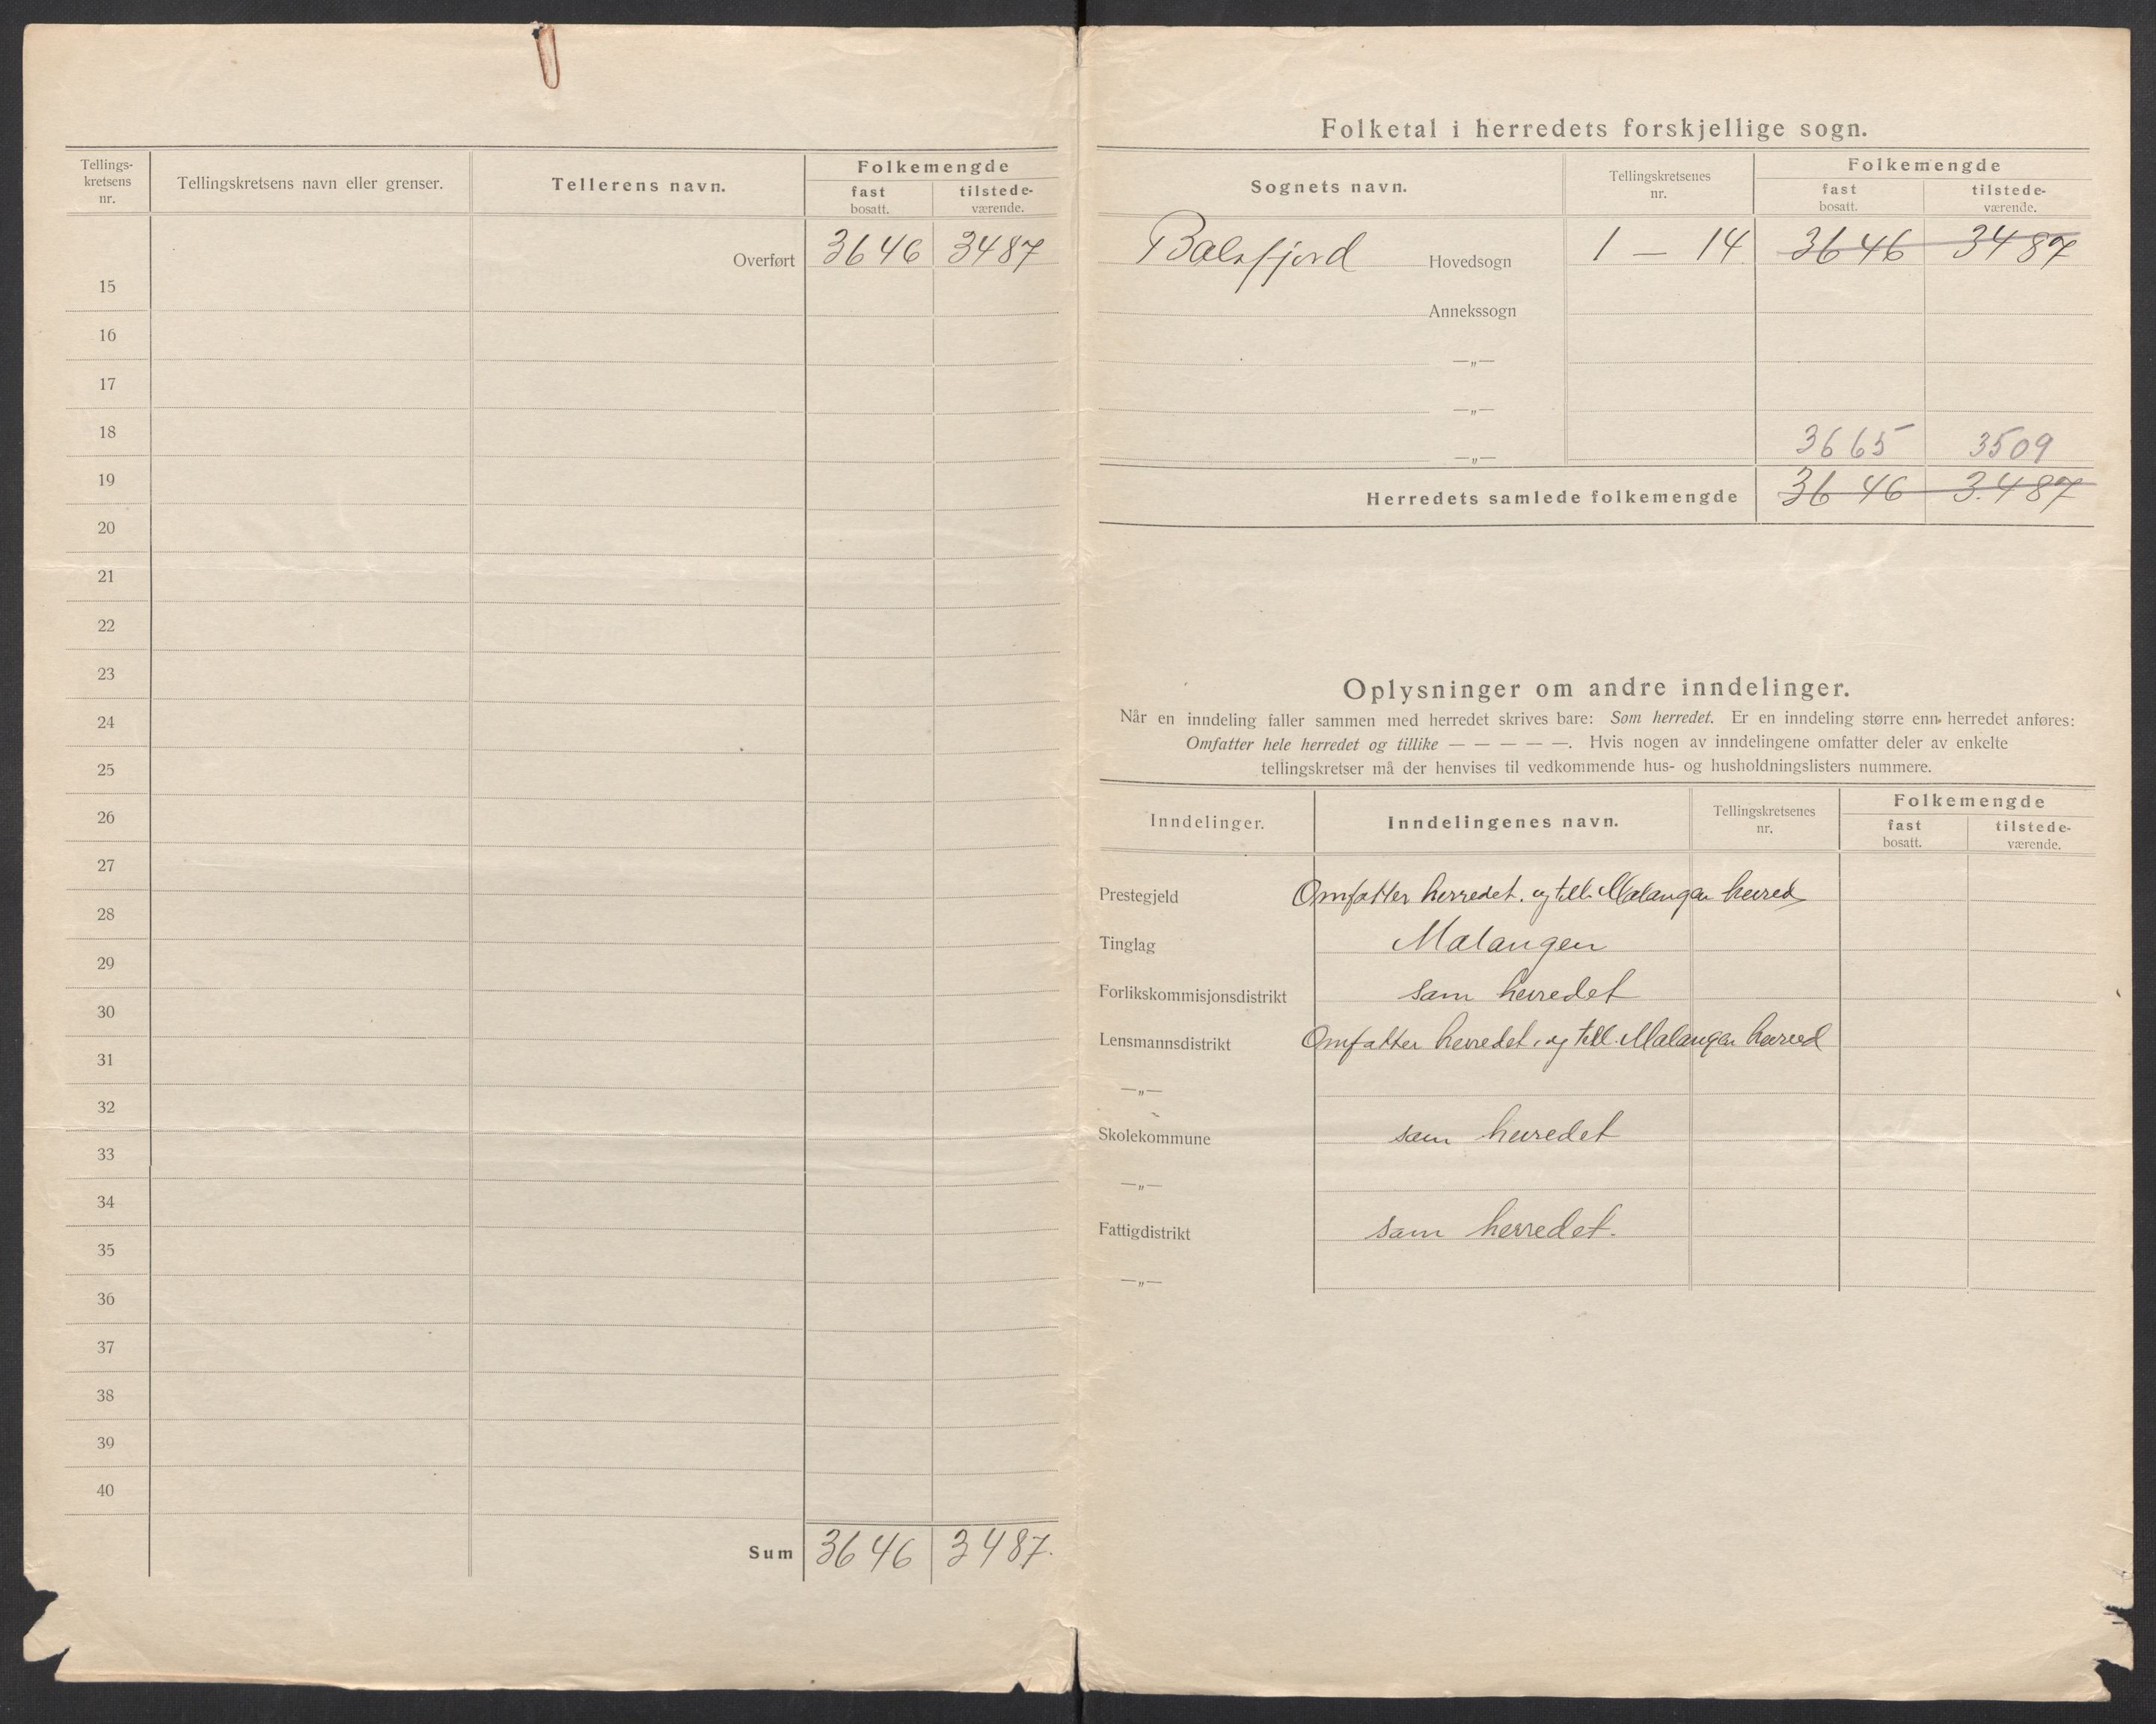 Tellings-
kretsens
nr.
Tellingskretsens navn eller grenser.
Tellerens navn.
Folkemengde
fast
bosatt.
tilstede-
værende.
Overført 3646 3487
15
16
17
18
19
20
21
22
23
24
25
26
27
28
29
30
31
32
33
34
35
36
37
38
39
40
Sum 3646 3487.
Folketal i herredets forskjellige sogn.
Sognets navn.
Tellingskretsenes
nr.
Folkemengde
fast
bosatt.
tilstede-
værende.
Balsfjord Hovedsogn 1 — 14 3646 3487
Annekssogn
—„—
—„—
3665 3509
—„—
Herredets samlede folkemengde 3646 3.487
Oplysninger om andre inndelinger.
Når en inndeling faller sammen med herredet skrives bare: Som herredet. Er en inndeling større enn herredet anføres:
Omfatter hele herredet og tillike — — — — —. Hvis nogen av inndelingene omfatter deler av enkelte
tellingskretser må der henvises til vedkommende hus- og husholdningslisters nummere.
Inndelinger.
Inndelingenes navn.
Tellingskretsenes
nr.
Folkemengde
fast
bosatt.
tilstede-
værende.
Prestegjeld Omfatter herredet. og till. Malangen herred
Tinglag Malangen
Forlikskommisjonsdistrikt som herredet
Lensmannsdistrikt Omfatter herredet, og till. Malangen herred
—„—
Skolekommune som herredet
—„—
Fattigdistrikt som herredet.
—„—